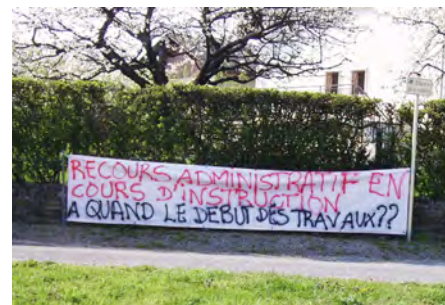 RECOURS ADMINISTRATIF EN
COURS D'INSTRUCTION
A QUAND LE DEBUT DES TRAVAUX??